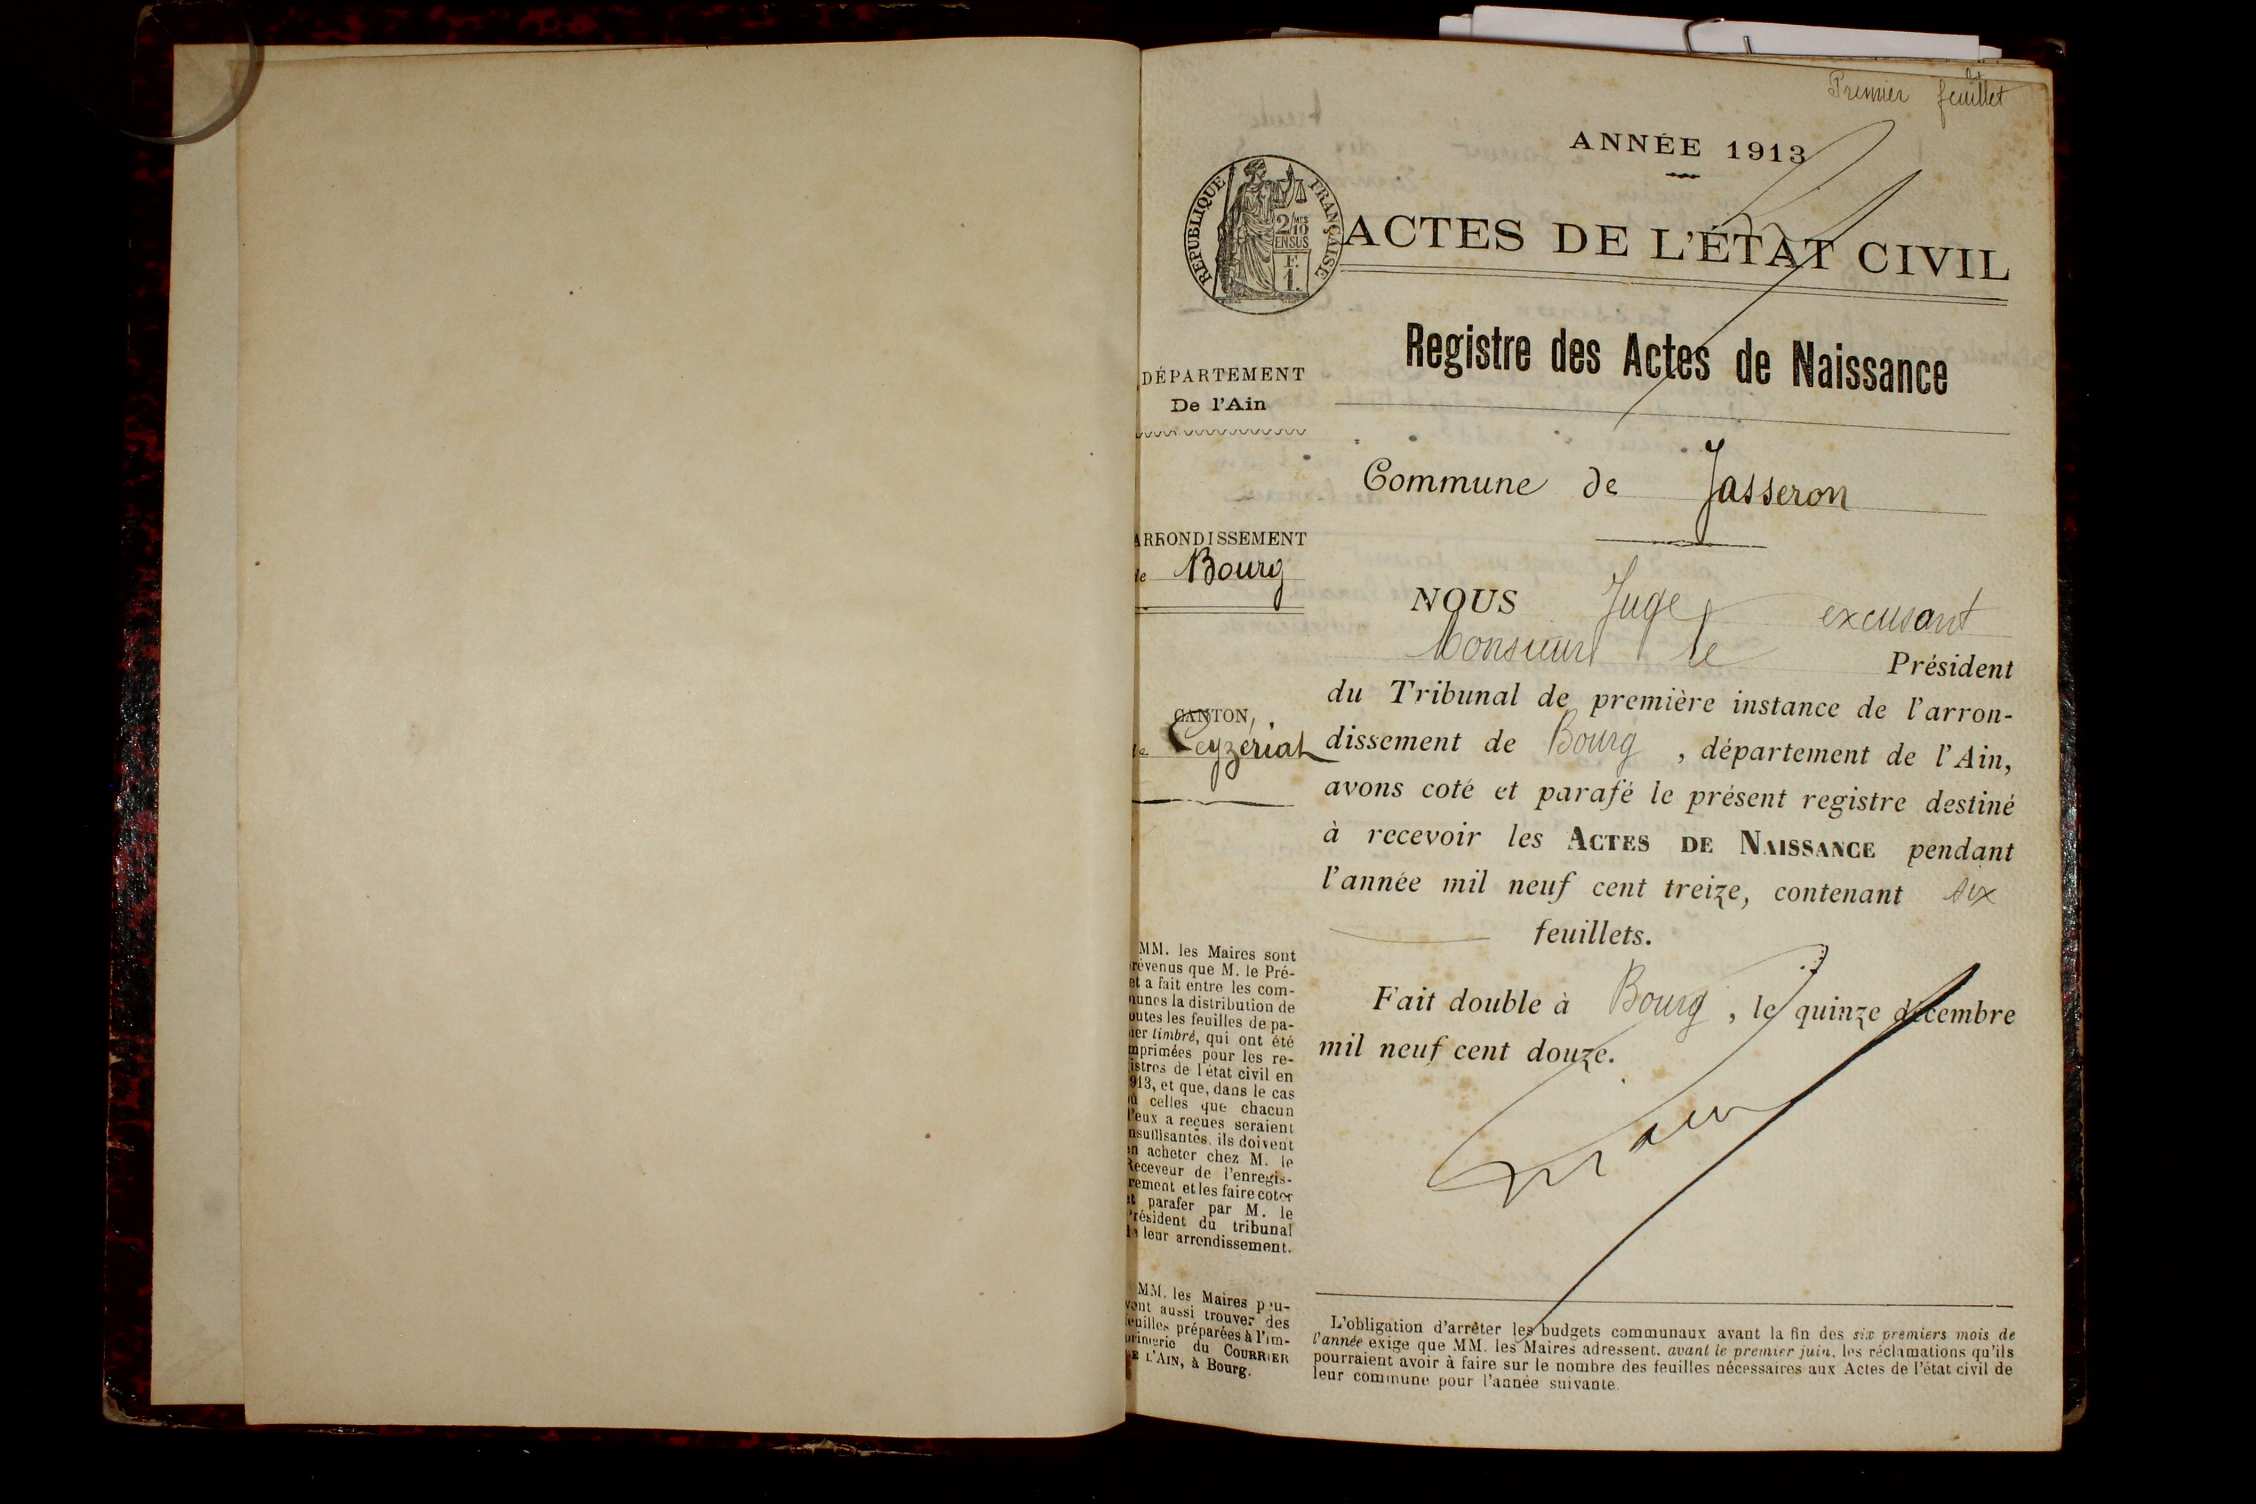 Premier feuillet
ANNÉE 1913
RÉPUBLIQUE FRANÇAISE
2/10
EN SUS
F.
1.
ACTES DE L'ÉTAT CIVIL
Registre des Actes de Naissance
DÉPARTEMENT
De l'Ain
Commune de Jasseron
ARRONDISSEMENT
de Bourg
NOUS Juge excusant
Monsieur le Président
CANTON
de Ceyzériat
du Tribunal de première instance de l'arron-
dissement de Bourg, département de l'Ain,
avons coté et parafé le présent registre destiné
à recevoir les ACTES DE NAISSANCE pendant
l'année mil neuf cent treize, contenant six
feuillets.
Fait double à Bourg, le quinze décembre
mil neuf cent douze.
MM. les Maires sont
révenus que M. le Pré-
et a fait entre les com-
unes la distribution de
outes les feuilles de pa-
ier timbré, qui ont été
mprimées pour les re-
istres de l'état civil en
913, et que, dans le cas
ù celles que chacun
d'eux a reçues seraient
nsuffisantes, ils doivent
en acheter chez M. le
Receveur de l'enregis-
rement et les faire coter
et parafer par M. le
Président du tribunal
de leur arrondissement.
MM. les Maires peu-
vent aussi trouver des
feuilles préparées à l'im-
primerie du COURRIER
DE L'AIN, à Bourg.
L'obligation d'arrêter les budgets communaux avant la fin des six premiers mois de
l'année exige que MM. les Maires adressent, avant le premier juin, les réclamations qu'ils
pourraient avoir à faire sur le nombre des feuilles nécessaires aux Actes de l'état civil de
leur commune pour l'année suivante.